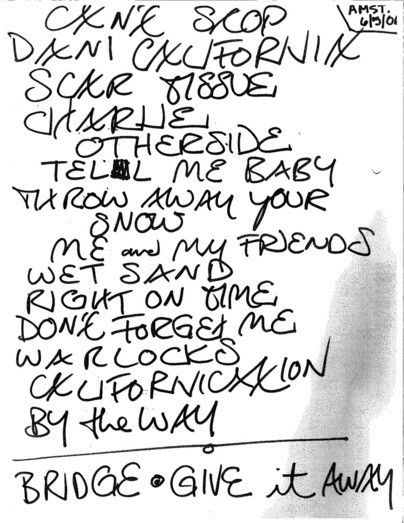 AMST.
6/5/06
CANT STOP
DANI CALIFORNIA
SCAR TISSUE
CHARLIE
OTHERSIDE
TELL ME BABY
THROW AWAY YOUR
SNOW
ME and MY FRIENDS
WET SAND
RIGHT ON TIME
DONT FORGET ME
WARLOCKS
CALIFORNICATION
BY the WAY
BRIDGE • GIVE it AWAY